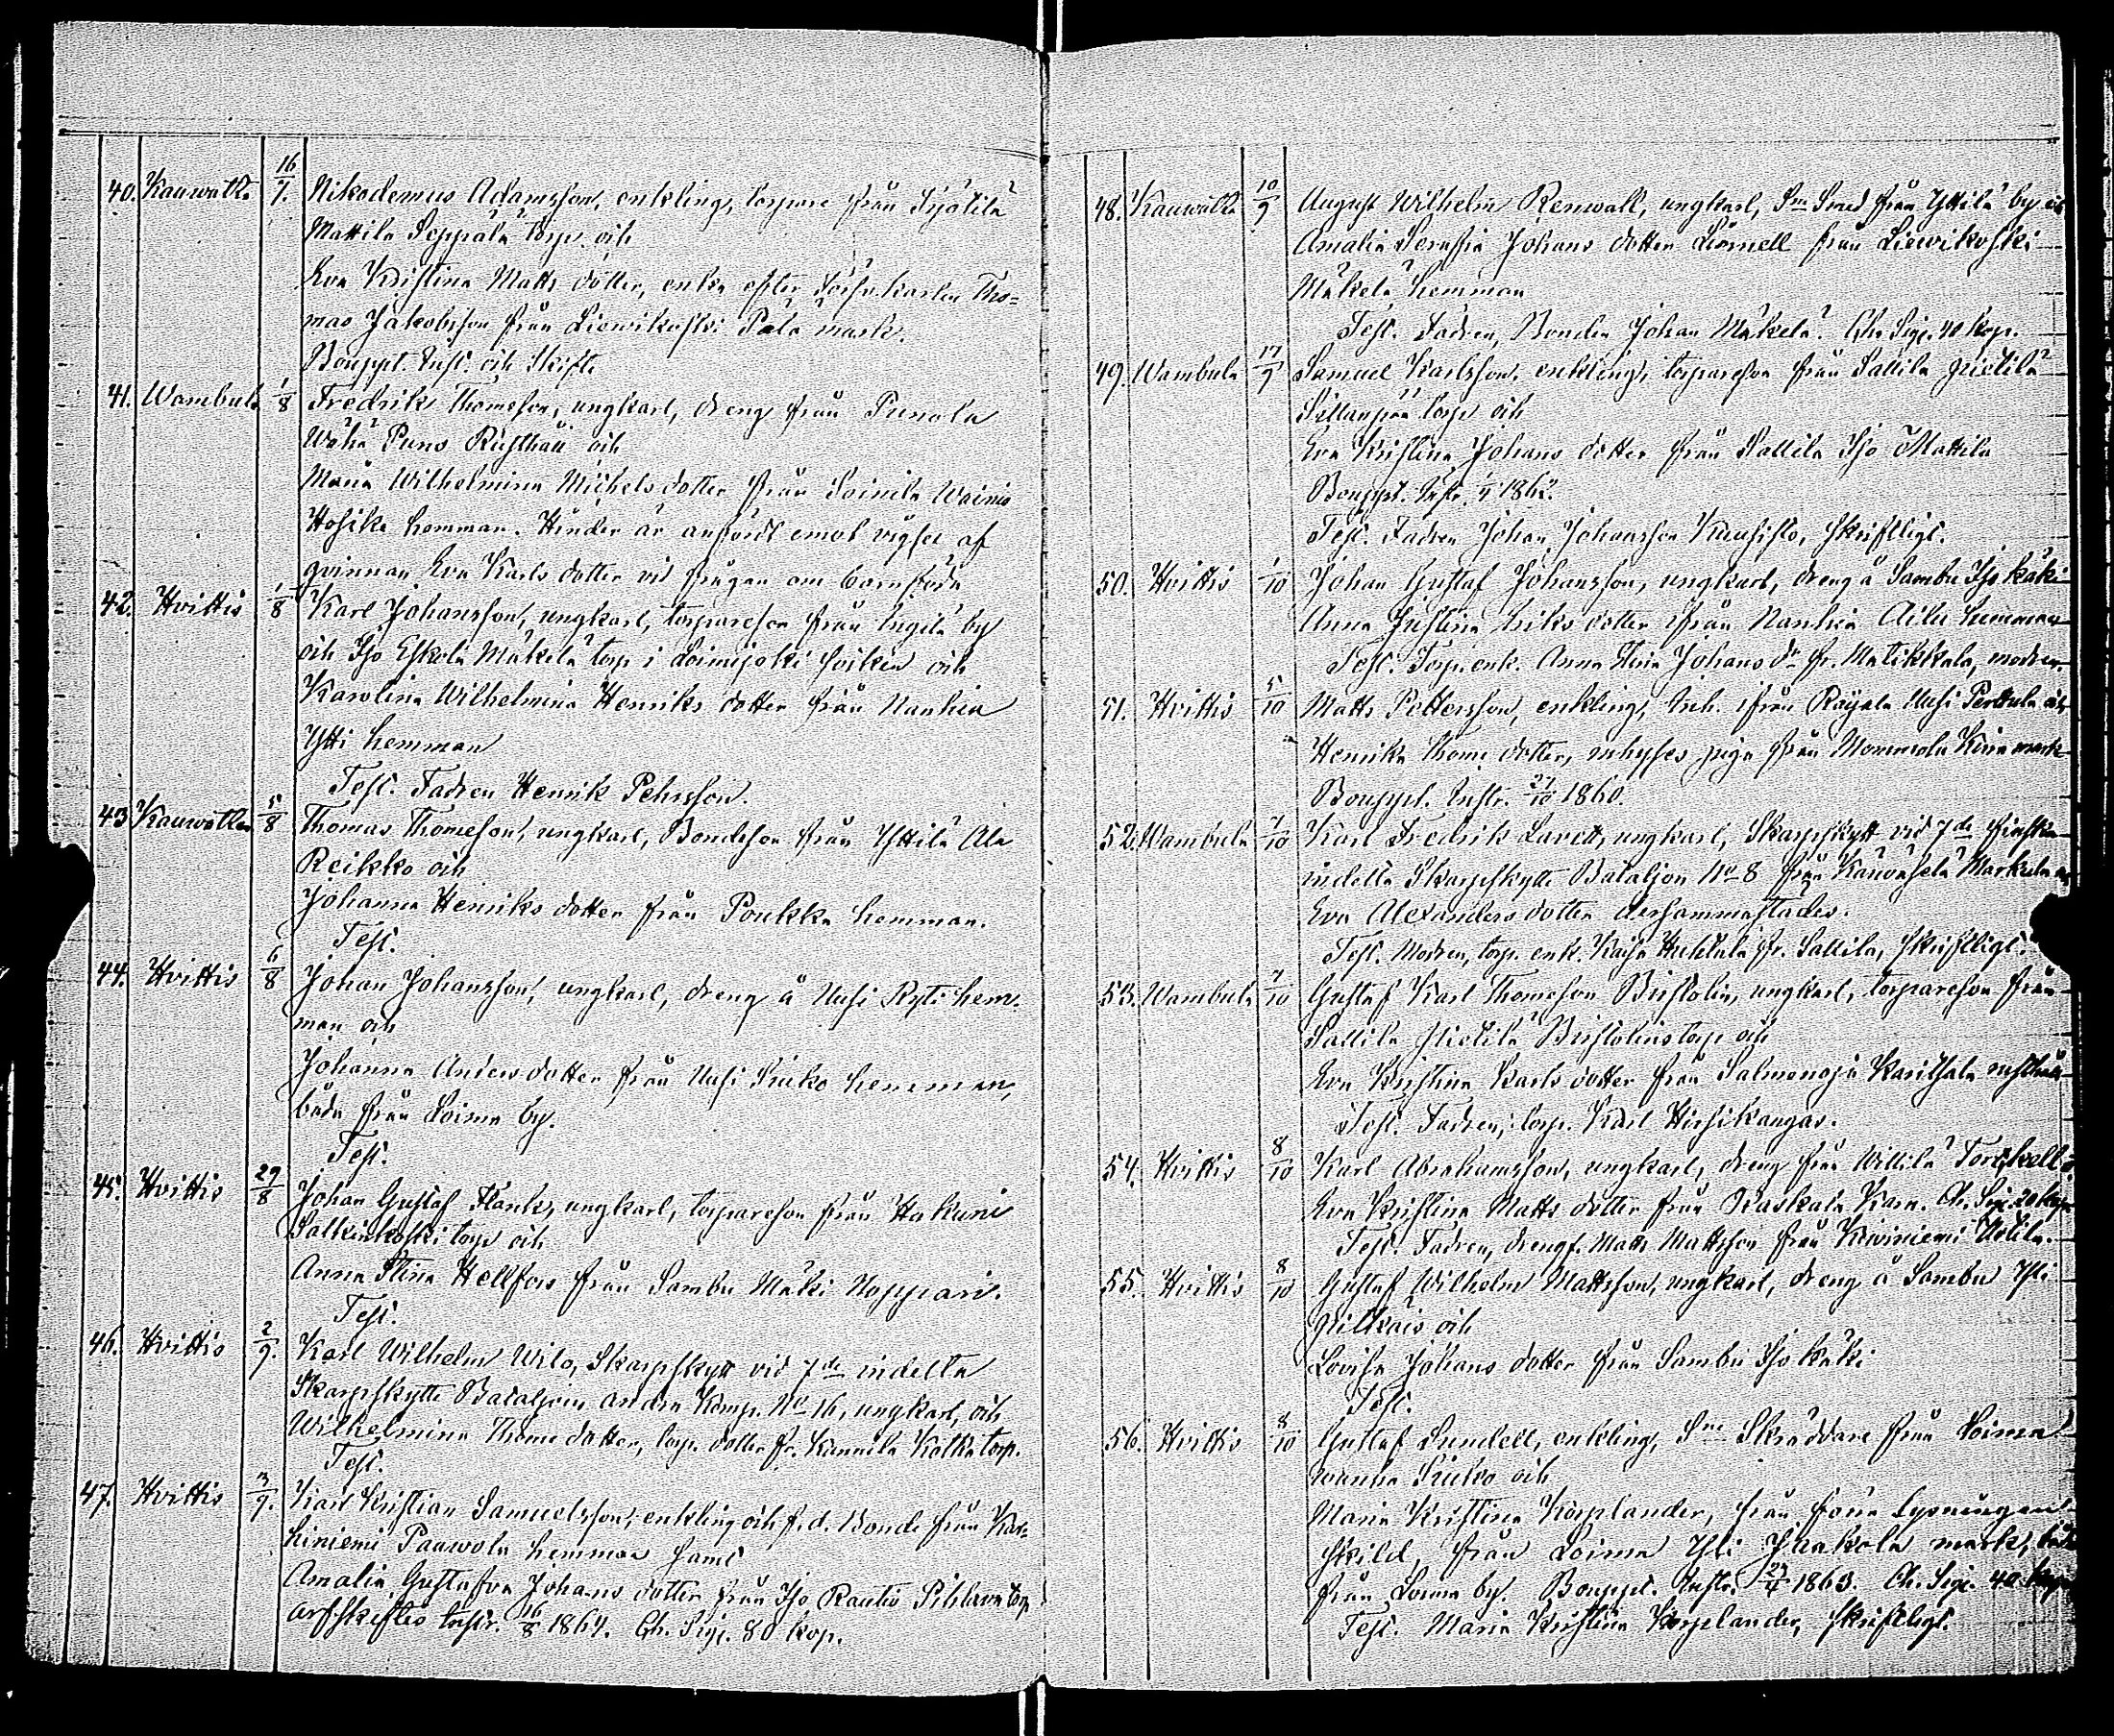 40. Kauwatla 16/7. Nikodemus Adamsson, enkling, torpare från
Mattila Seppälä torp och
Eva Kristina Matts dotter, enka efter Tho=
mas Jakobsson från Liewikoski Pala mark.
Bouppt. Instr. och Skifte
41. Wambula 1/8 Fredrik Thomeson, ungkarl, dreng från Punola
Wähä Puno Rusthåll och
Maria Wilhelmina Michels dotter från Soinila Wainio
Hosike hemman. Hinder är anfördt emot vigsel af
qvinnan Eva Karls dotter vid frågan om barnsföda
42. Hvittis 1/8 Karl Johansson, ungkarl, torpareson från by
och Iso Eskola Mäkelä torp i Loimijoki socken och
Karolina Wilhelmina Henriks dotter från Nanhia
Ytti hemman
Test. Fadren Henrik Pehrsson.
43 Kauwatla 5/8 Thomas Thomeson, ungkarl, Bondeson från Yttilä Ala
Reikko och
Johanna Henriks dotter från Poukka hemman.
Test.
44. Hvittis 6/8 Johan Johansson, ungkarl, dreng å Uusi Ryti hem-
man och
Johanna Anders dotter från Uusi Seuko hemman,
båda från Loima by.
Test.
45. Hvittis 29/8 Johan Gustaf Flank, ungkarl, torpareson från Hakuni
Salkinkoski torp och
Anna Stina Hellfors från Sambu Mäki Noppari.
Test.
46. Hvittis 2/9. Karl Wilhelm Wilo, Skarpskytt vid 7de indelta
Skarpskytte Bataljon andra Komp. No 16, ungkarl, och
Wilhelmina Thome dotter, torp. dotter fr. Kannila Kölkä torp.
Test.
47. Hvittis 3/9. Karl Kristian Samuelsson, enkling och f.d. Bonde från Kar=
hiniemi Pauwola hemman samt
Amalia Gustafva Johans dotter från Iso Rautio Pihlava torp
Arfskiftes instr. 16/8 1864. Ch. Sig. 80 kop.
48. Kauwatla 10/9 August Wilhelm Renwall, ungkarl, Sne Smed från Yttilä by och
Amalia Serafia Johans dotter Linnell från Liewikoski
Mäkelä hemman
Test. Fadren, Bonden Johan Mäkelä. Ch. Sig. 40 kop.
49. Wambula 17/9 Samuel Karlsson, enkling, torpareson från Sallila Pietilä
Sillanpää torp och
Eva Kristina Johans dotter från Sallila Iso Mattila
Bouppt. Instr. 1862.
Test. Fadren Johan Johansson Kauhisto, skriftligt.
50. Hvittis 1/10 Johan Gustaf Johansson, ungkarl, dreng å Sambu Iso käki
Anna Justina Eriks dotter från Nanhia Aila hemman
Test. Torp. enk. Anna Stina Johans dr fr. Matikkala, modren.
51. Hvittis 5/10 Matts Pettersson, enkling, Inh. från Raijala Uusi Perttula och
Henrika Thome dotter, inhyses piga från Mommola Kiria mark
Bouppt. Instr. 27/10 1860.
52. Wambula 7/10 Karl Fredrik Lavett, ungkarl, Skarpskytt vid 7de finska
indelta Skarpskytte Bataljon No 8 från Kauvasela Markula och
Eva Alexanders dotter dersammastädes.
Test. Modren, torp. enk. Kaisa Huhtala fr. Sallila, skriftligt.
53. Wambula 7/10 Gustaf Karl Thomeson Bristolin, ungkarl, torpareson från
Sallila Pietilä Bristolins torp och
Eva Kristina Karls dotter från Salmenoja Karitsala rusthåll
Test. Fadren, torp. Karl Hirsikangas.
54. Hvittis 8/10 Karl Abrahamsson, ungkarl, dreng från Willilä Torckell o
Eva Kristina Matts dotter från Raskala Kara. Ch. Sig. 20 kop
Test. Fadren, drengf. Matts Mattsson från Kiviniemi Uotila.
55. Hvittis 8/10 Gustaf Wilhelm Mattsson, ungkarl, dreng å Sambu Yli
Pitkäis och
Lovisa Johans dotter från Sambu Iso käki
Test.
56. Hvittis 8/10 Gustaf Lundell, enkling, Sne Skräddare från Loima
wanha Seuko och
Maria Kristina Korplander, från förra lysningen
skild, från Loima Yli Jaakola mark, båda
från Loima by. Bouppt. Instr. 27/4 1863. Ch. Sig. 40 kop
Test. Maria Kristina Korplander, skriftligt.